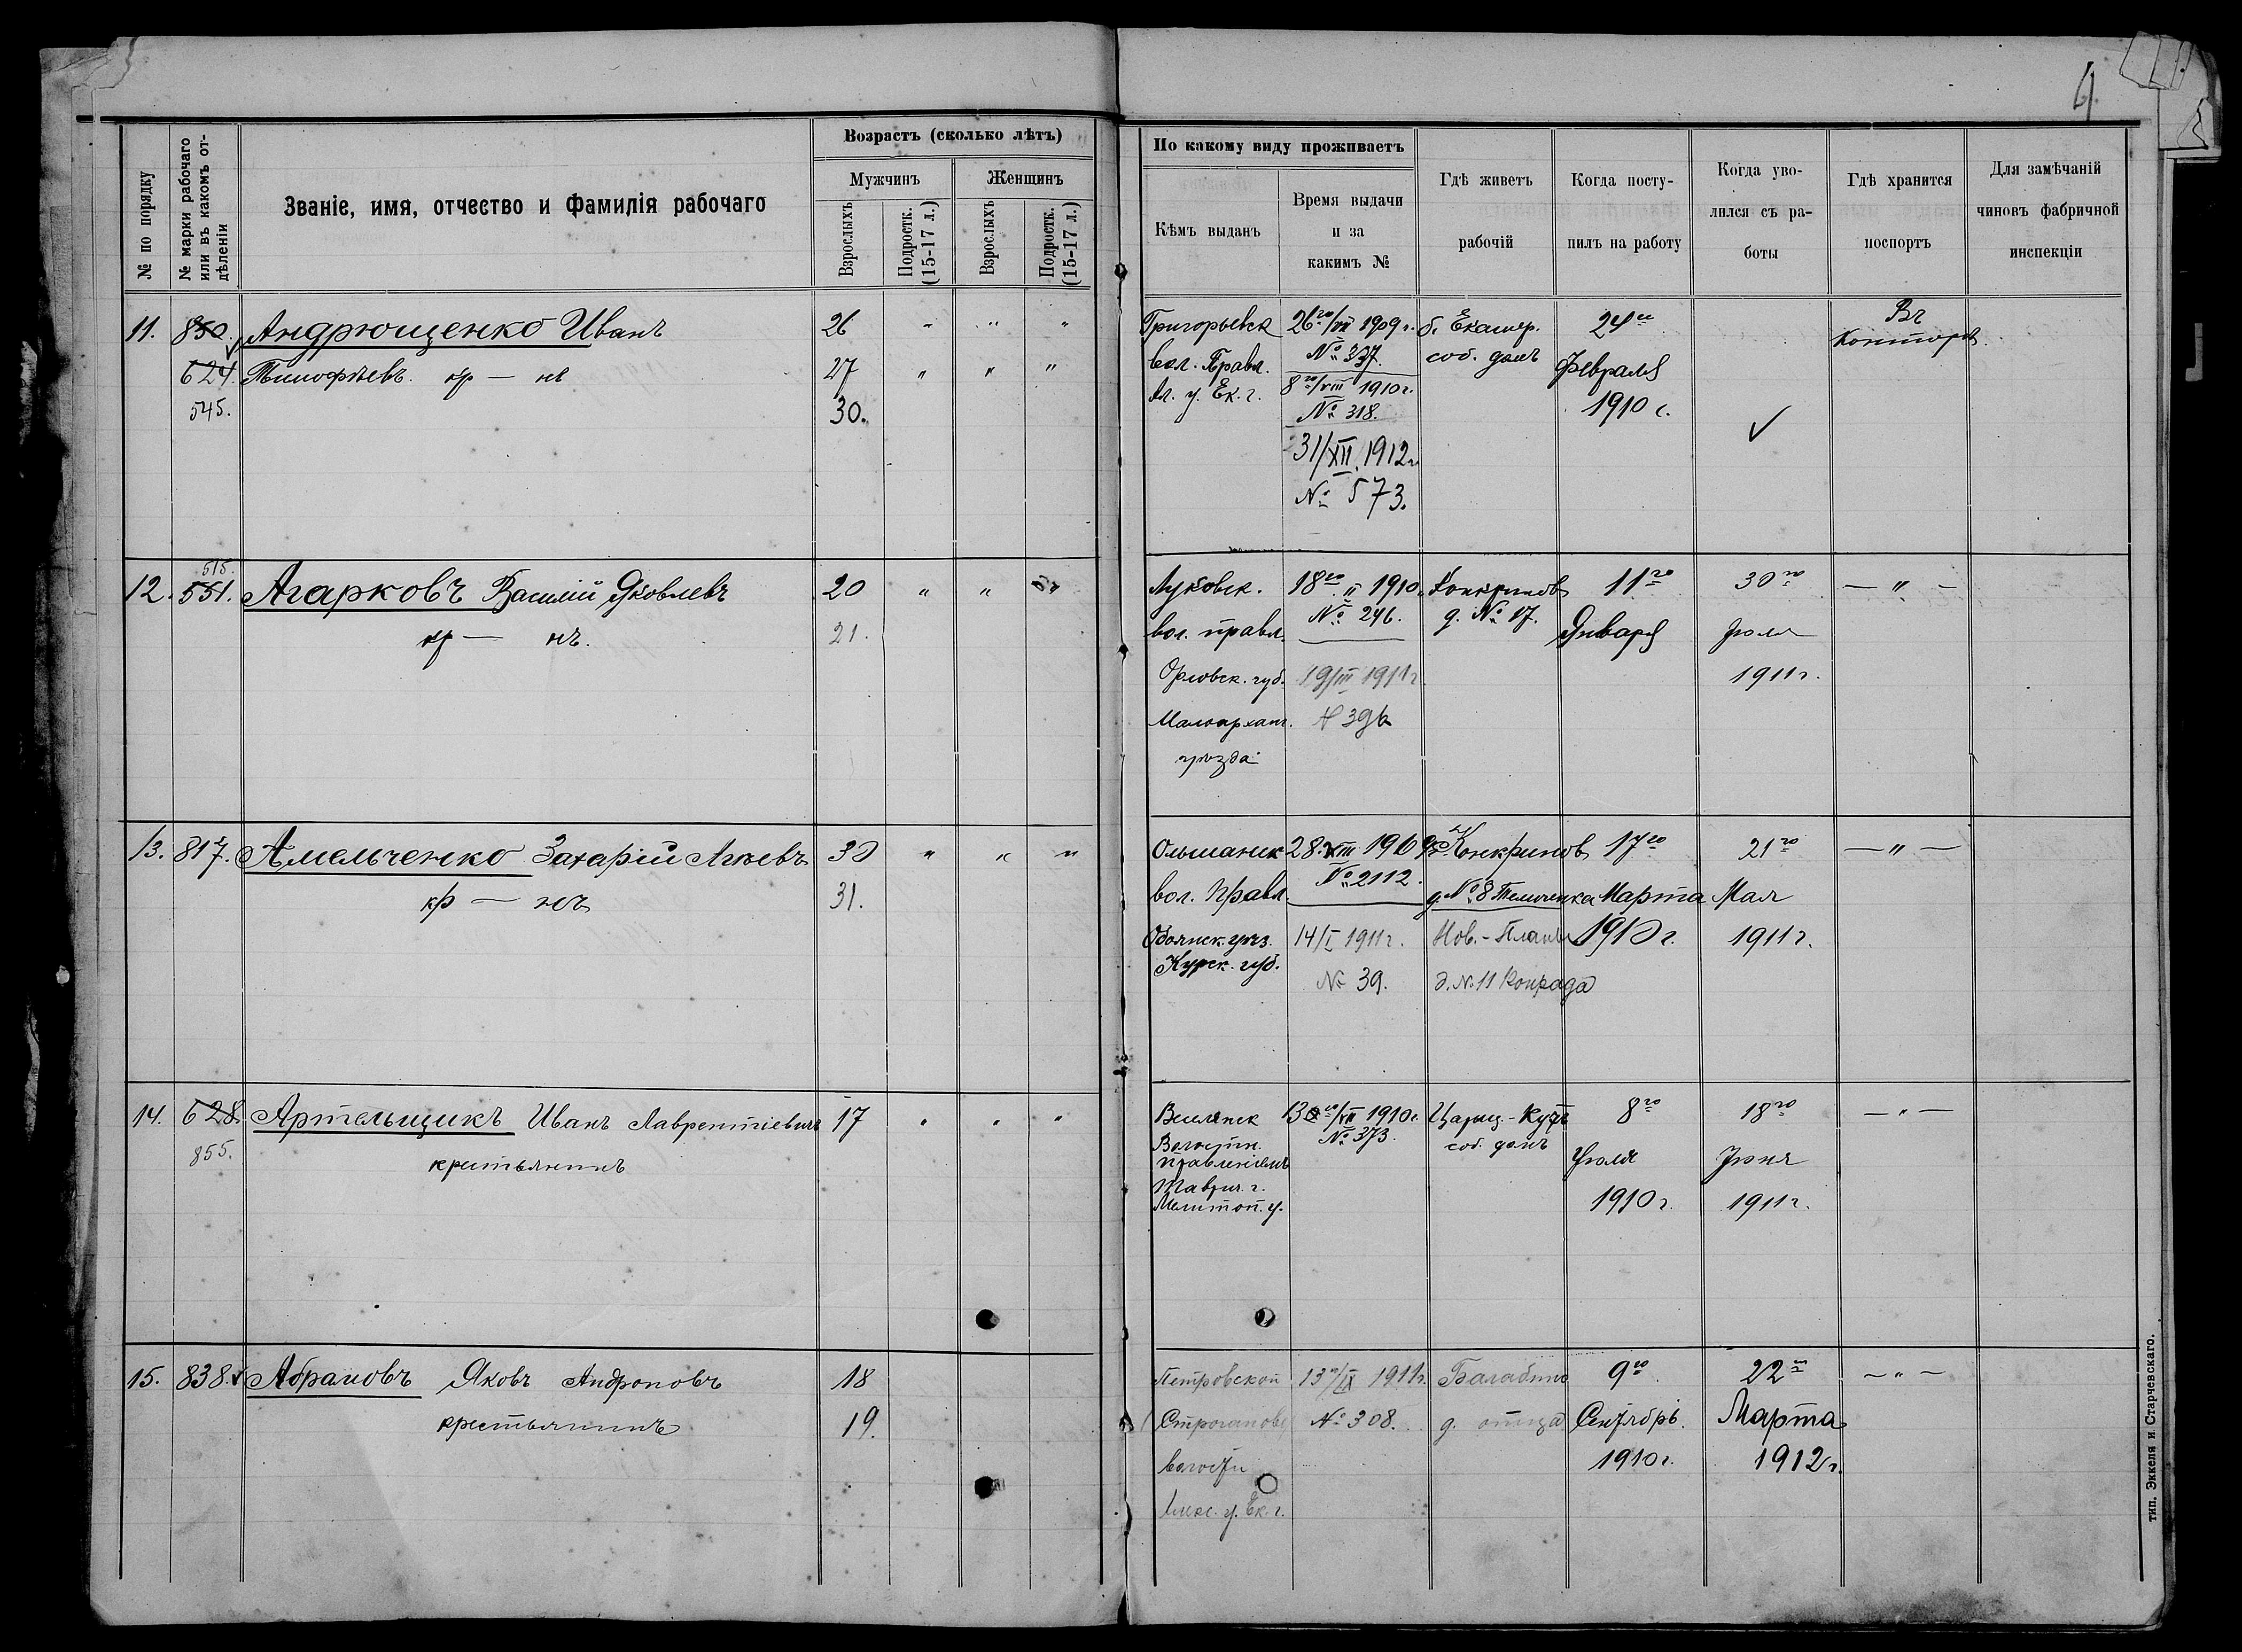 6
№ по порядку
№ марки рабочаго или въ какомъ отдѣленіи
Званіе, имя, отчество и фамилія рабочаго
Возрастъ (сколько лѣтъ)
Мужчинъ
Женщинъ
Взрослыхъ
Подростк. (15-17 л.)
Взрослыхъ
Подростк. (15-17 л.)
По какому виду проживаетъ
Кѣмъ выданъ
Время выдачи и за какимъ №
Гдѣ живетъ рабочій
Когда поступилъ на работу
Когда уволился съ работы
Гдѣ хранится поспортъ
Для замѣчаній чиновъ фабричной инспекціи
11. 850. Андрющенко Иванъ 26 " " "
624. Тимофѣевъ. кр — нъ 27 " " "
545. 30.
Григорьевск 26го/VII 1909 г. б. Екатер. 24го Въ
вол. Правл. № 337. соб. домъ Февраля Конторѣ.
Ал. у. Ек. г. 8го/VIII 1910 г. 1910 г.
№ 318.
31/XII 1912 г.
№ 573.
515.
12. 551. Агарковъ Василій Яковлевъ 20 " " "
кр — нъ. 21.
Луковск. 18го II 1910 г. Конкриновъ 11го 30го — " —
вол. правл. № 246. д. № 17. Января Іюля
Орловск. губ. 19/III 1911 г. 1911 г.
Малоархан. № 396
уѣзда
13. 817. Амельченко Захарій Агѣевъ 30 " " "
кр — нъ 31.
Ольшанск 28. VIII 1909 г. Конкринов 17го 21го — " —
вол. Правл. № 2112. д. № 8 Темченка Марта Мая
Обоянск. уѣз. 14/I 1911 г. Нов.-Планъ 1910 г. 1911 г.
Курск. губ. № 39. д. № 11 Конрада
14. 628. Артельщикъ Иванъ Лаврентіевичъ 17 " " "
855. крестьянинъ
Веселянск 13го/VII 1910 г. Цариц-Кутъ 8го 18го — " —
Волостн. № 373. соб. домъ
правленіемъ Іюля Іюня
Таврич. г. 1910 г. 1911 г.
Мелитоп. у.
15. 838. Абрамовъ Яковъ Андроновъ 18
крестьянинъ 19.
Петровской 13го/IX 1911 г. Балабино 9го 22го — " —
Строганов. № 308. д. отца Сентябрь. Марта
волости 1910 г. 1912 г.
Алекс. у. Ек. г.
тип. Эккеля и Старчевскаго.